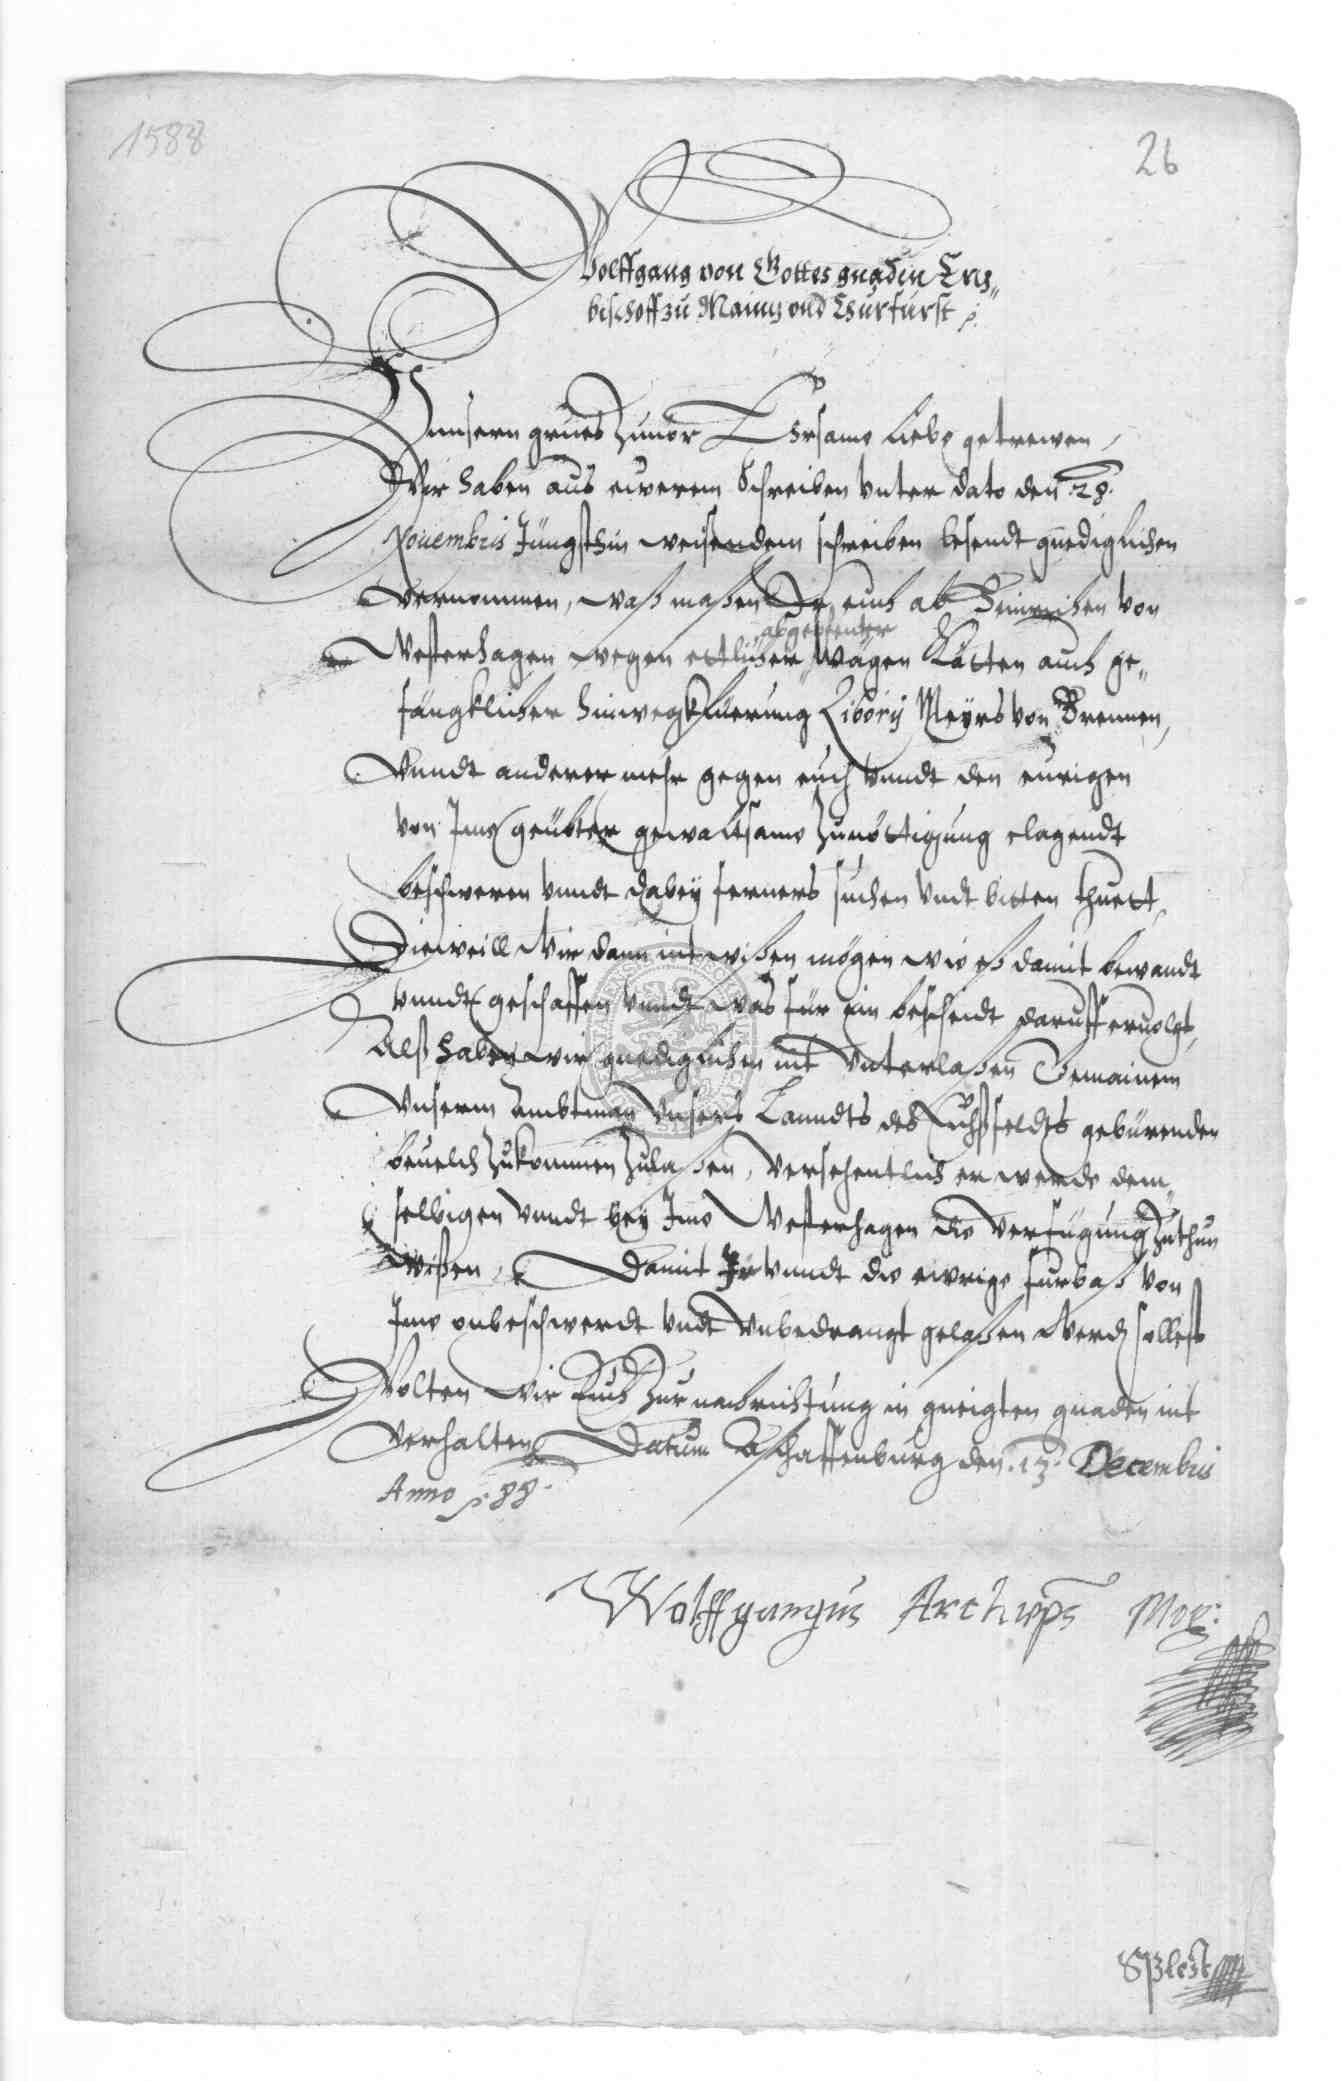 1588
26
Wolffgang von Gottes gnaden Ertz„
bischoff zu Maintz vnd Churfurst p.
Vnnsern grues zuuor Ersame liebe getrewen,
Wir haben aus ewerem Schreiben vnter dato den 28.
Nouembris Jüngsthin weisendem schreiben lesendt gnediglichen
vernommen, waß maßen Ir euch ab Heinrichen von
abgepfenter
Westerhagen wegen ettlicher Wägen Kasten auch ge„
fängklicher hinwegkfüerung Liborij Meyrs von Bremen,
vnndt anderer mehr gegen euch vnndt den eurigen
von Ime geübter gewaltsame zunöttigung clagendt
beschweren vnndt dabey ferners suchen vndt bitten thuett,
Dieweill Wir dann nit wißen mögen wie eß damit bewandt
vnndt geschaffen vnndt was für ein bescheidt daruff eruolgt,
Alß haben wir gnediglichen nit vnterlaßen
Vnserm Ambtman vnsers Lanndts des Eichßfeldts gebürenden
beuelch zukommen zulaßen, versehentlich er werde dem„
selbigen vnndt bey Ime Westerhagen die verfügung zuthun
wißen, Damit Ir vnndt die ewrige furbaß von
Ime onbeschwerdt vndt vnbedrangt gelaßen werden sollest
Wolten wir Euch zur nachrichtung in gneigten gnaden nit
verhalten, Datum Aschaffenburg den 13. Decembris
Anno p. 88.
Wolffgangus Archieps Mog: